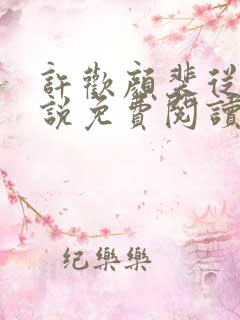 許歡顏裴從
說免費閱讀
纪樂樂